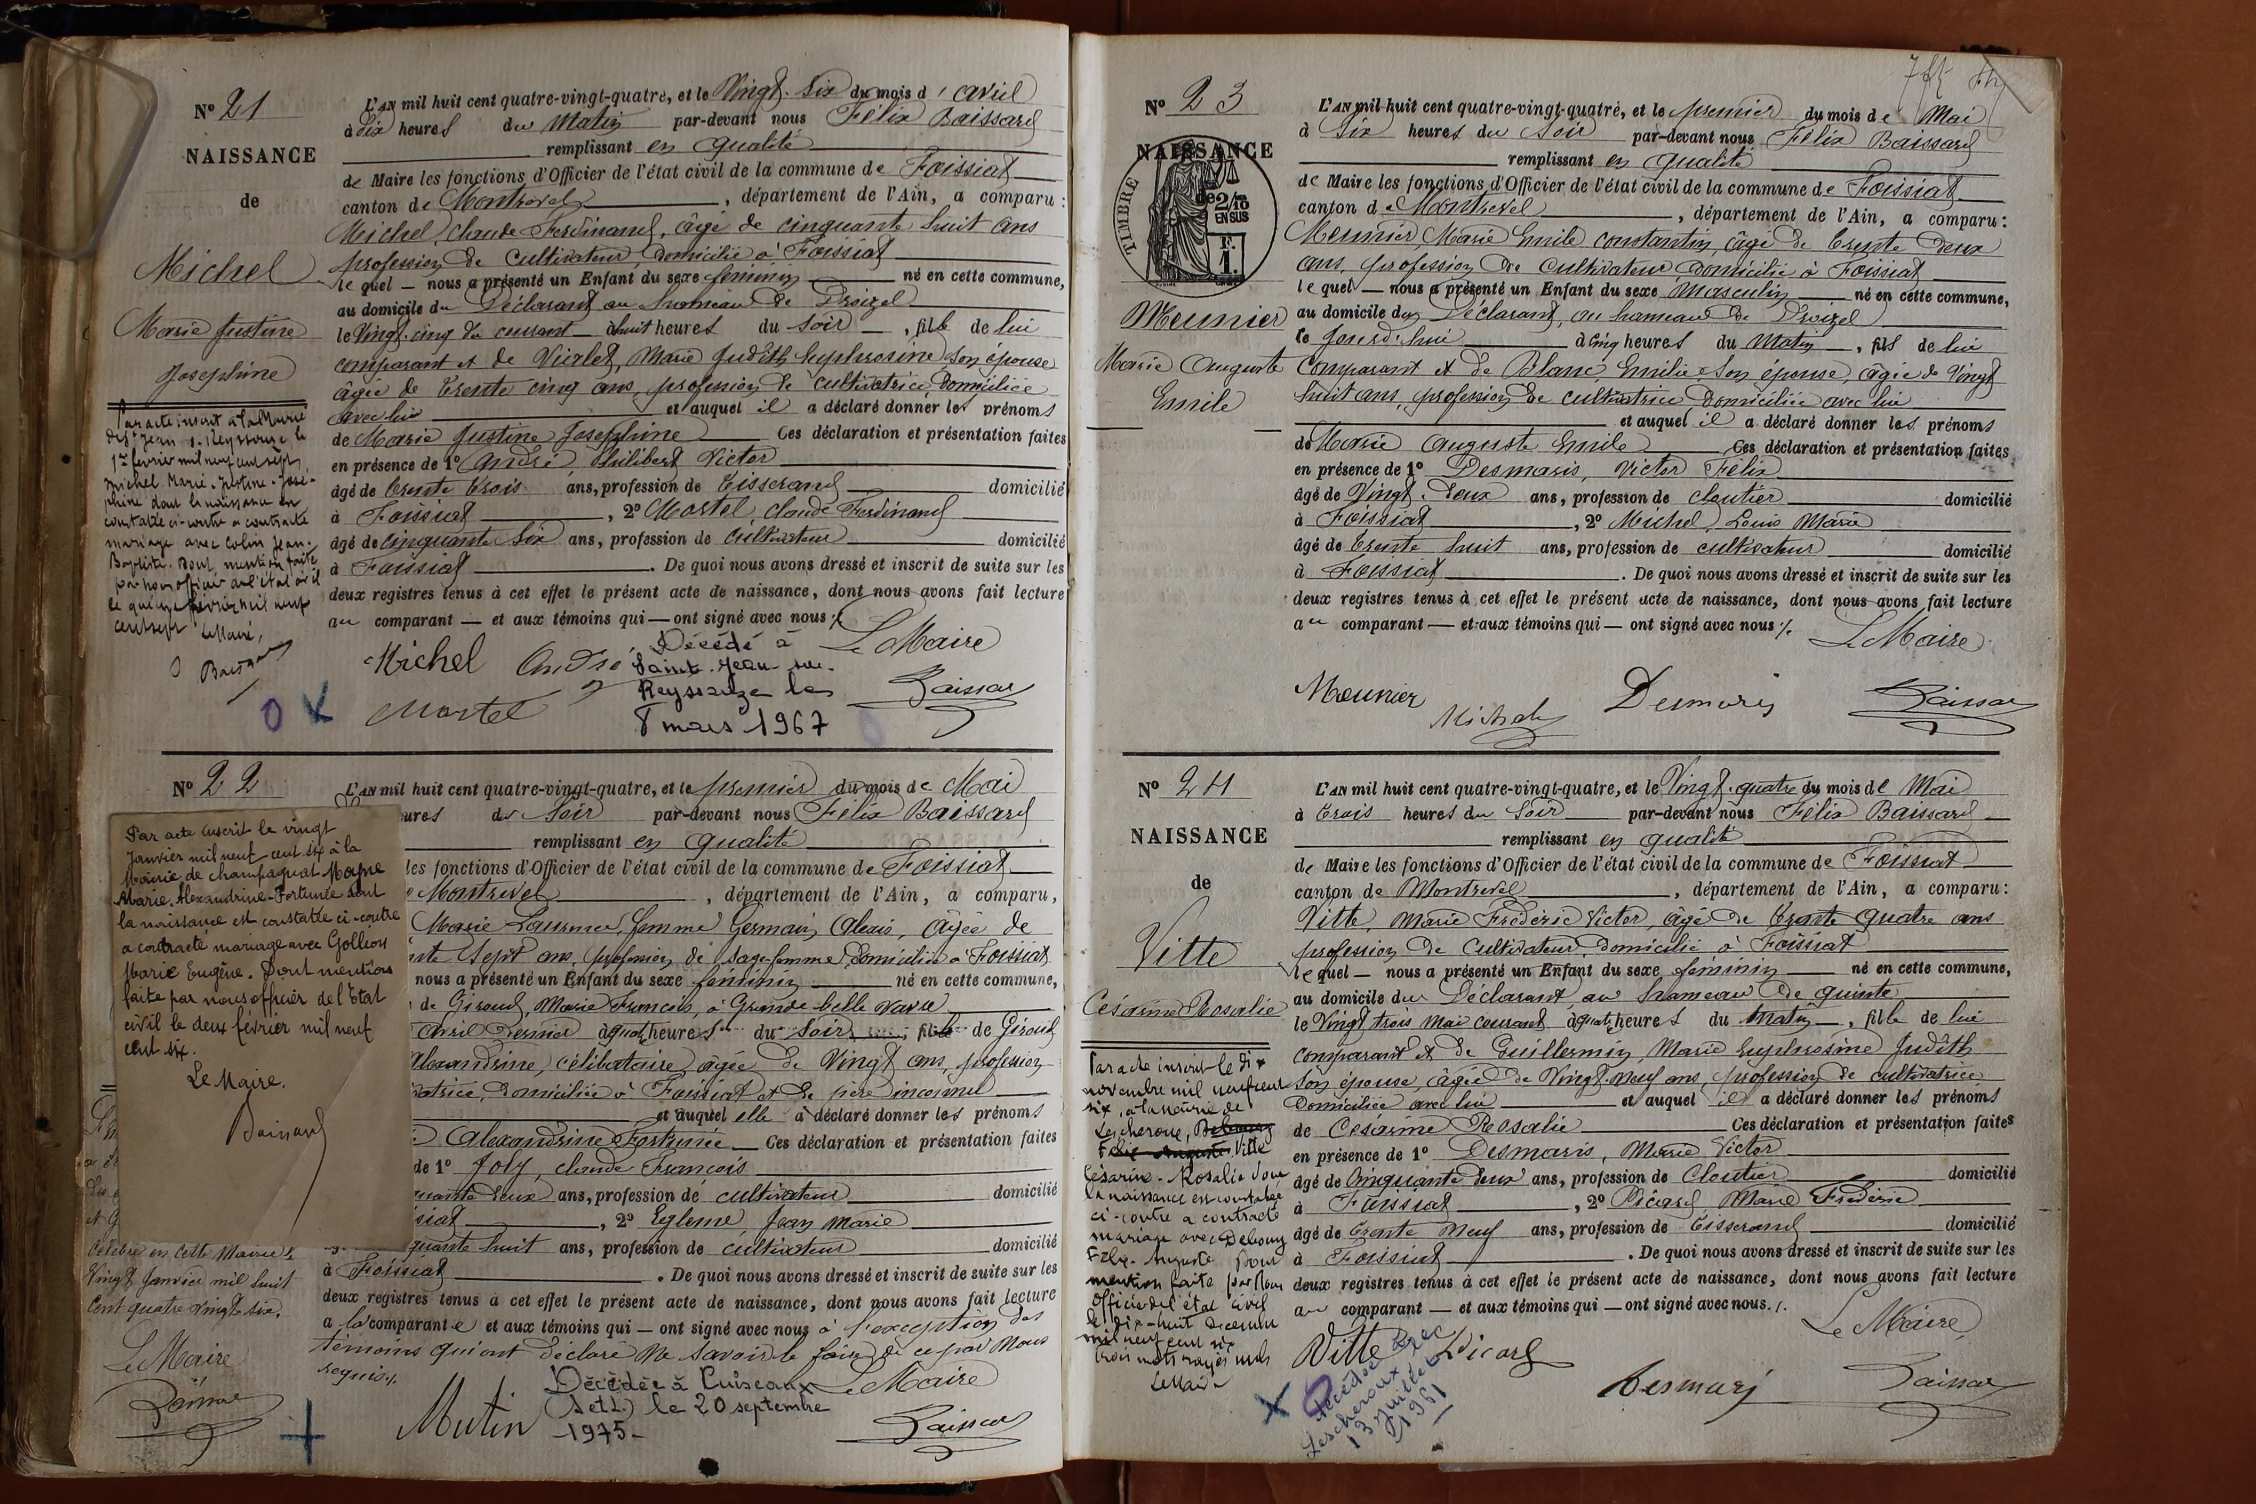 Nº 21
NAISSANCE
de
Michel
Marie Justine
Josephine
Par acte inscrit à la Mairie
de St Jean s. Reyssouze le
1er février mil neuf cent sept,
Michel Marie-Justine-José-
phine dont la naissance est
constatée ci-contre a contracté
mariage avec Colin Jean-
Baptiste. Dont mention faite
par nous officier de l'état civil
le quinze février mil neuf
cent sept. Le Maire,
L'AN mil huit cent quatre-vingt-quatre, et le Vingt-Six du mois d'avril
à dix heures du Matin par-devant nous Félix Baissard
remplissant en qualité
de Maire les fonctions d'Officier de l'état civil de la commune de Foissiat
canton de Montrevel, département de l'Ain, a comparu:
Michel, Claude Ferdinand, âgé de cinquante huit ans
profession de Cultivateur, domicilié à Foissiat
lequel — nous a présenté un Enfant du sexe féminin né en cette commune,
au domicile du Déclarant au hameau de Droizel
le Vingt-cinq du courant à huit heures du Soir, fille de lui
comparant et de Vierlet, Marie Judith Euphrosine son épouse
âgée de trente cinq ans, profession de cultivatrice domiciliée
avec lui et auquel il a déclaré donner les prénoms
de Marie Justine Josephine Ces déclaration et présentation faites
en présence de 1º André, Philibert Victor
âgé de trente trois ans, profession de Tisserand domicilié
à Foissiat, 2º Mortel Claude Ferdinand
âgé de cinquante Six ans, profession de Cultivateur domicilié
à Foissiat. De quoi nous avons dressé et inscrit de suite sur les
deux registres tenus à cet effet le présent acte de naissance, dont nous avons fait lecture
au comparant — et aux témoins qui — ont signé avec nous ./.
Le Maire
Michel André
Mortel
Baissard
Décédé à
Saint-Jean-sur-
Reyssouze le
8 mars 1967
Nº 22
Par acte inscrit le vingt
Janvier mil neuf-cent six à la
Mairie de Champagnat
Marie-Alexandrine-Fortunée dont
la naissance est constatée ci-contre
a contracté mariage avec Gollion
Marie Eugène. Dont mention
faite par nous officier de l'état
civil le deux février mil neuf
cent six.
Le Maire.
Baissard
Célébré en cette Mairie le
Vingt Janvier mil huit
cent quatre vingt six.
Le Maire
L'AN mil huit cent quatre-vingt-quatre, et le premier du mois de Mai
heures du Soir par-devant nous Félix Baissard
remplissant en qualité
les fonctions d'Officier de l'état civil de la commune de Foissiat
Montrevel, département de l'Ain, a comparu,
Marie Laurence, femme Germain, Alexis, âgée de
Sept ans, profession de Sage-femme, domiciliée à Foissiat
nous a présenté un Enfant du sexe féminin né en cette commune,
de Giroud, Marie François, à Grande-belle vavre
avril dernier à quatre heures du Soir, fille de Giroud
Alexandrine, célibataire âgée de Vingt ans, profession
domiciliée à Foissiat et de père inconnu
et auquel elle a déclaré donner les prénoms
Alexandrine Fortunée Ces déclaration et présentation faites
de 1º Joly, Claude François
deux ans, profession de cultivateur domicilié
, 2º Egleme Jean Marie
huit ans, profession de cultivateur domicilié
à Foissiat. De quoi nous avons dressé et inscrit de suite sur les
deux registres tenus à cet effet le présent acte de naissance, dont nous avons fait lecture
a la comparante et aux témoins qui — ont signé avec nous à l'exception des
témoins qui ont déclaré ne savoir le faire de ce par nous
requis ./.
Le Maire
Mutin
Baissard
Décédée à Cuiseaux
(S et L.) le 20 septembre
1975-
Nº 23
NAISSANCE
de
TIMBRE
2/10
EN SUS
F.
1.
Meunier
Marie Auguste
Emile
L'AN mil huit cent quatre-vingt-quatre, et le premier du mois de Mai
à Six heures du Soir par-devant nous Félix Baissard
remplissant en qualité
de Maire les fonctions d'Officier de l'état civil de la commune de Foissiat
canton de Montrevel, département de l'Ain, a comparu:
Meunier, Marie Emile Constantin, âgé de trente deux
ans, profession de Cultivateur domicilié à Foissiat
lequel — nous a présenté un Enfant du sexe Masculin né en cette commune,
au domicile du Déclarant, au hameau de Droizel
le jourd'hui à cinq heures du Matin, fils de lui
comparant et de Blanc Emilie Son épouse, âgée de Vingt
huit ans, profession de cultivatrice domiciliée avec lui
et auquel il a déclaré donner les prénoms
de Marie Auguste Emile Ces déclaration et présentation faites
en présence de 1º Desmaris, Victor Félix
âgé de Vingt-deux ans, profession de cloutier domicilié
à Foissiat, 2º Michel, Louis Marie
âgé de trente huit ans, profession de cultivateur domicilié
à Foissiat. De quoi nous avons dressé et inscrit de suite sur les
deux registres tenus à cet effet le présent acte de naissance, dont nous avons fait lecture
au comparant — et aux témoins qui — ont signé avec nous ./.
Le Maire
Meunier Michel Desmaris Baissard
Nº 24
NAISSANCE
de
Vitte
Césarine Rosalie
Par acte inscrit le dix
novembre mil neuf cent
six, à la mairie de
Lescheroux, Debourg
Félix Auguste Vitte
Césarine-Rosalie dont
la naissance est constatée
ci-contre a contracté
mariage avec Debourg
Félix-Auguste Dont
mention faite par Nous
officier de l'état civil
le dix-huit Décembre
mil neuf cent six
trois mots rayés nuls
Le Maire
L'AN mil huit cent quatre-vingt-quatre, et le Vingt-quatre du mois de Mai
à trois heures du Soir par-devant nous Félix Baissard
remplissant en qualité
de Maire les fonctions d'Officier de l'état civil de la commune de Foissiat
canton de Montrevel, département de l'Ain, a comparu:
Vitte, Marie Frédéric Victor, âgé de trente quatre ans
profession de Cultivateur, domicilié à Foissiat
lequel — nous a présenté un Enfant du sexe féminin né en cette commune,
au domicile du Déclarant au hameau de quinte
le Vingt trois mai courant à quatre heures du Matin, fille de lui
comparant et de Guillermin Marie Euphrosine Judith
Son épouse, âgée de Vingt-neuf ans, profession de cultivatrice
domiciliée avec lui et auquel il a déclaré donner les prénoms
de Césarine Rosalie Ces déclaration et présentation faites
en présence de 1º Desmaris, Marie Victor
âgé de Cinquante deux ans, profession de Cloutier domicilié
à Foissiat, 2º Picard Marie Frédéric
âgé de trente Neuf ans, profession de Tisserand domicilié
à Foissiat. De quoi nous avons dressé et inscrit de suite sur les
deux registres tenus à cet effet le présent acte de naissance, dont nous avons fait lecture
au comparant — et aux témoins qui — ont signé avec nous ./.
Le Maire
Vitte Picard Desmaris Baissard
Lescheroux le
13 juillet
1961